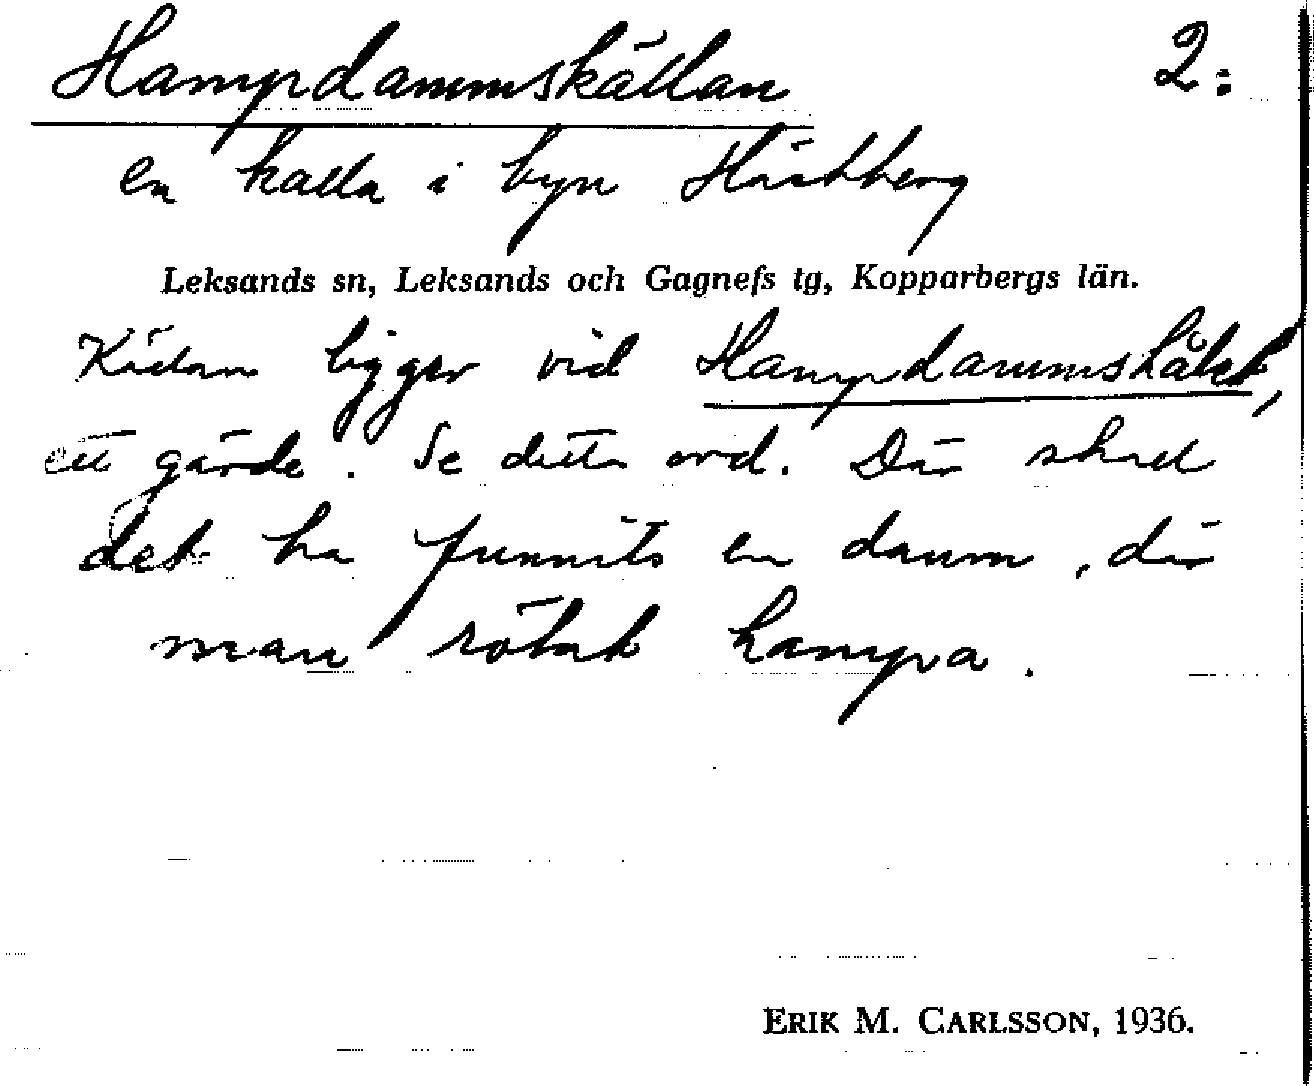 Hampdammskällan 2:
en kalla i byn Hästberg
Leksands sn, Leksands och Gagnefs tg, Kopparbergs län.
Källan ligger vid Hampdammshålet,
ett gärde. Se detta ord. Där skall
det ha funnits en damm, där
man rötat hampa.
ERIK M. CARLSSON, 1936.